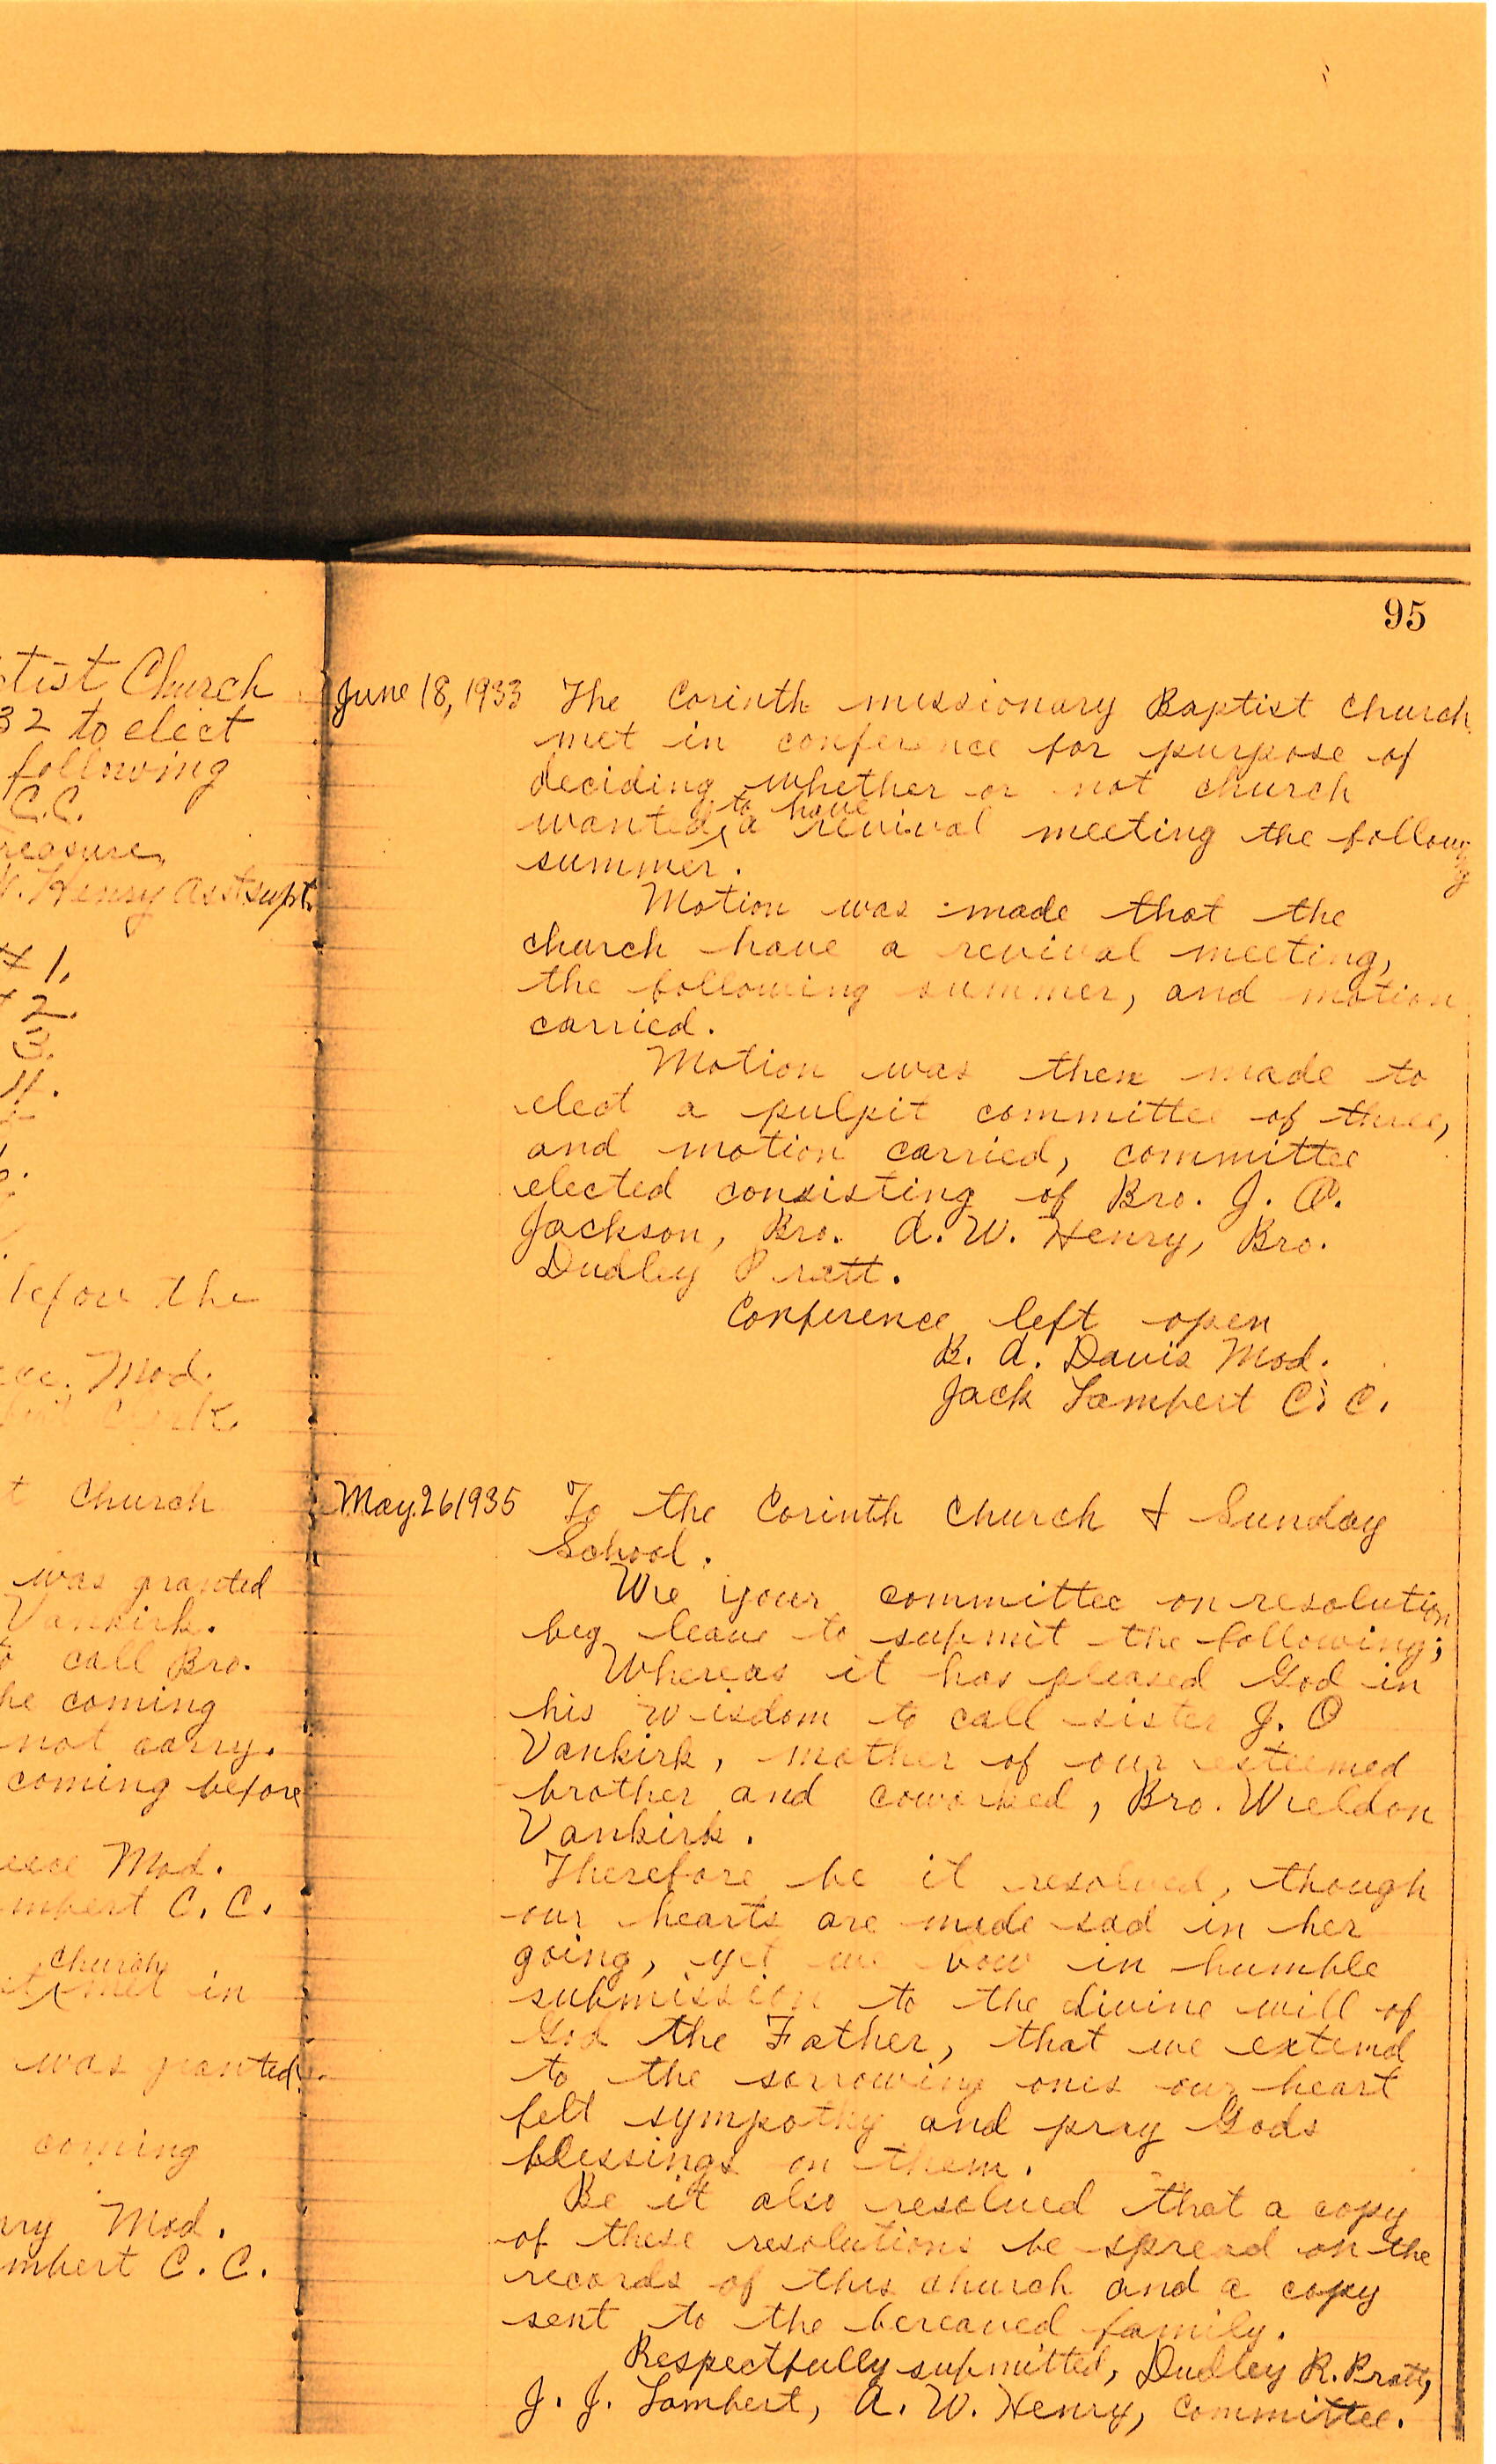 tist Church
32 to elect
following
C.C.
reasure,
W. Henry Asst supt.
# 1.
2.
3.
4.
before the
Mod.
t Church
was granted
Vankirk.
call Bro.
he coming
not carry.
coming before
Mod.
mbert C. C.
church
met in
was granted.
coming
ry Mod.
mbert C. C.
95
June 18, 1933 The Corinth missionary Baptist Church
met in conference for purpose of
deciding whether or not church
wanted to have a revival meeting the following
summer.
Motion was made that the
church have a revival meeting,
the following summer, and motion
carried.
Motion was then made to
elect a pulpit committee of three,
and motion carried, committee
elected consisting of Bro. J. P.
Jackson, Bro. A. W. Henry, Bro.
Dudley Pratt.
Conference left open
B. A. Davis Mod.
Jack Lambert C. C.
May 26 1935 To the Corinth Church & Sunday
School.
We your committee on resolution
beg leave to submit the following;
Whereas it has pleased God in
his wisdom to call sister J. O
Vankirk, mother of our esteemed
brother and coworked, Bro. Weldon
Vankirk.
Therefore be it resolved, though
our hearts are made sad in her
going, yet we bow in humble
submission to the divine will of
God the Father, that we extend
to the sorrowing ones our heart
felt sympathy and pray Gods
blessings on them.
Be it also resolved that a copy
of these resolutions be spread on the
records of this church and a copy
sent to the bereaved family.
Respectfully submitted, Dudley R. Pratt,
J. J. Lambert, A. W. Henry, Committee.